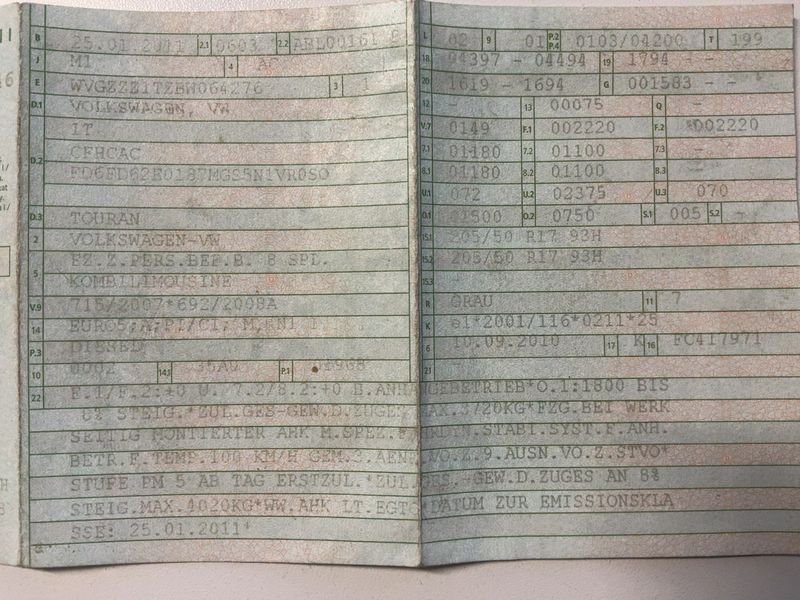 B 25.01.2011 2.1 0603 2.2 ABL00161 8
J M1 4 AC
E WVGZZZ1TZBW064276 3 1
D.1 VOLKSWAGEN, VW
1T
D.2 CFHCAC
FD6FD62E0187MGS5N1VR0SO
D.3 TOURAN
2 VOLKSWAGEN-VW
FZ.Z.PERS.BEF.B. 8 SPL.
5 KOMBILIMOUSINE
V.9 715/2007*692/2008A
14 EURO5;A;PI/CI; M,N1 I
P.3 DIESEL
10 0002 14.1 35A0 P.1 01968
L 02 9 01 P.2 P.4 0103/04200 T 199
18 04397 - 04494 19 1794 -
20 1619 - 1694 G 001583 -
12 - 13 00075 Q -
V.7 0149 F.1 002220 F.2 002220
7.1 01180 7.2 01100 7.3 -
8.1 01180 8.2 01100 8.3 -
U.1 072 U.2 02375 U.3 070
O.1 01500 O.2 0750 S.1 005 S.2 -
15.1 205/50 R17 93H
15.2 205/50 R17 93H
15.3 -
R GRAU 11 7
K e1*2001/116*0211*25
6 10.09.2010 17 K 16 FC417971
21
22 F.1/F.2:+0 U. 7.2/8.2:+0 B.ANHÄNGEBETRIEB*O.1:1800 BIS
8% STEIG.*ZUL.GES-GEW.D.ZUGES MAX.3720KG*FZG.BEI WERK
SEITIG MONTIERTER AHK M.SPEZ.FAHRDYN.STABI.SYST.F.ANH.
BETR.F.TEMP.100 KM/H GEM.3.AEND.VO.Z.9.AUSN.VO.Z.STVO*
STUFE PM 5 AB TAG ERSTZUL.*ZUL.GES.-GEW.D.ZUGES AN 8%
STEIG.MAX.4020KG*WW.AHK LT.EGTG*DATUM ZUR EMISSIONSKLA
SSE: 25.01.2011*